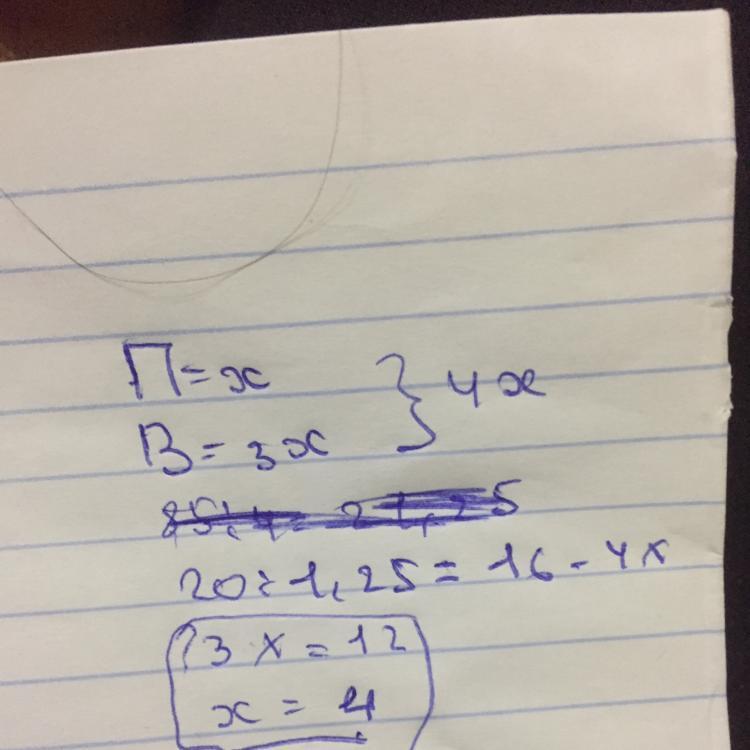 П = x
} 4x
В = 3x
85:4 = 21,25
20 : 1,25 = 16 - 4x
3x = 12
x = 4